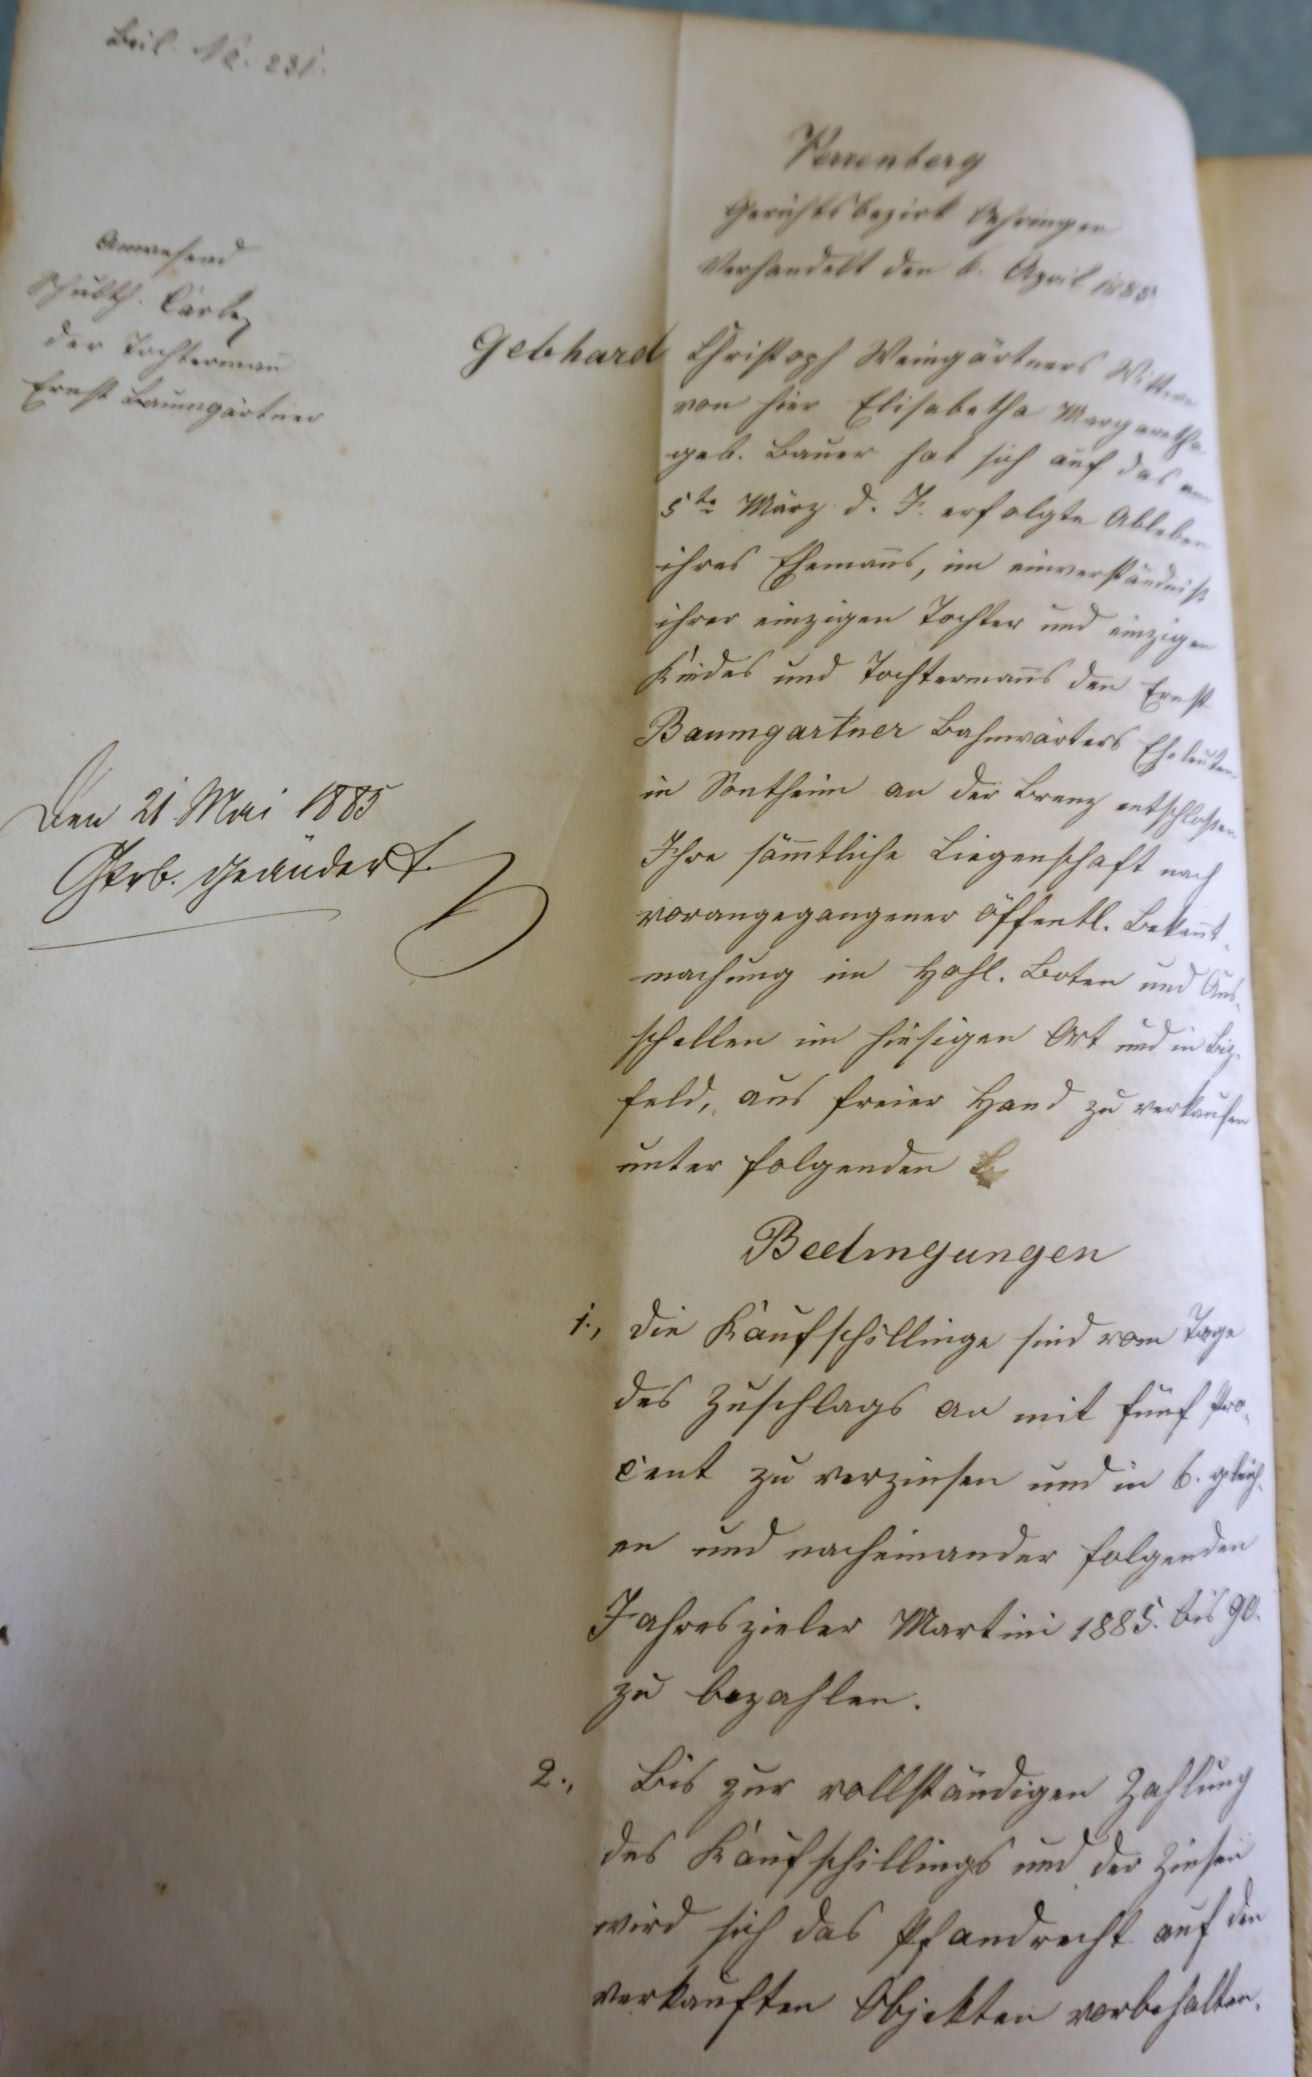 Beil. No. 231.
Verrenberg
Gerichtsbezirk Oehringen
Verhandelt den 6. April 1885
Anwesend
Schulth.
der Tochtermañ
Ernst Baumgärtner
Gebhard Christoph Weingärtners Wittwe
von hier Elisabetha Margaretha
geb. Bauer hat sich auf das am
5ten März d. J. erfolgte Ableben
ihres Ehemañs, im einverständniß
ihrer einzigen Tochter und einzigen
Kindes und Tochtermañs den Ernst
Baumgartner Bahnwärters Eheleuten
in Sontheim an der Brenz entschloßen
Ihre säm̃tliche Liegenschaft nach
vorangegangener öffentl. Bekañt-
machung im Hohl. Boten und Aus-
schellen im hiesigen Ort und in Biz-
feld, aus freier Hand zu verkaufen
unter folgenden
Den 21 Mai 1885
Gtrb. geändert.
Bedingungen
1., die Kaufschillinge sind vom Tage
des Zuschlags an mit fünf Pro-
cent zu verzinsen und in 6. gleich-
en und nacheinander folgenden
Jahreszieler Martini 1885. bis 90.
zu bezahlen.
2., Bis zur vollständigen Zahlung
des Kaufschillings und der Zinsen
wird sich das Pfandrecht auf den
verkauften Objekten vorbehalten.